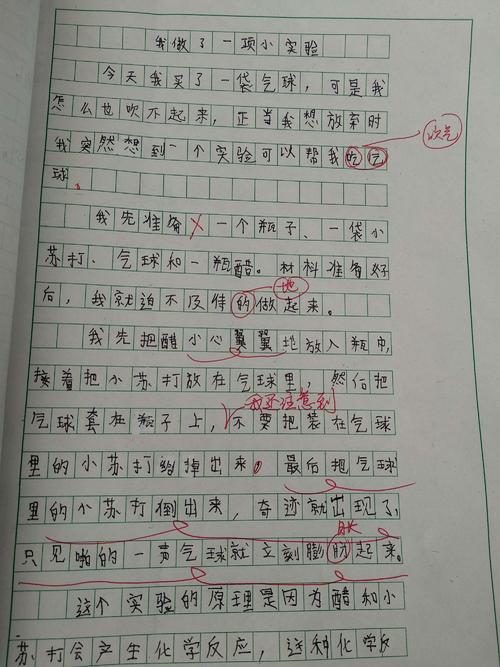 我做了一项小实验
今天我买了一袋气球，可是我
怎么也吹不起来，正当我想放弃时
吹气
我突然想到一个实验可以帮我吃气
球。
我先准备 一个瓶子、一袋小
苏打、气球和一瓶醋。材料准备好
地
后，我就迫不及待的做起来。
我先把醋小心翼翼地放入瓶中，
接着把小苏打放在气球里，然后把
我还注意到
气球套在瓶子上，不要把装在气球
里的小苏打给掉出来。最后把气球
里的小苏打倒出来，奇迹就出现了，
胀
只见啪的一声气球就立刻膨肮起来。
这个实验的原理是因为醋和小
苏打会产生化学反应，这种化学反